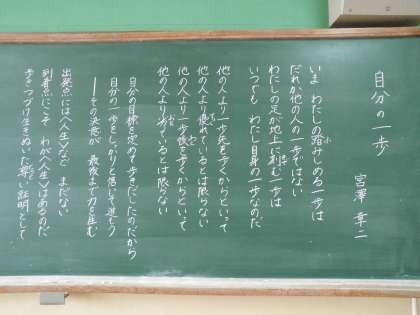 自分の一歩
宮澤章二
いま わたしの踏みしめる一歩は
だれか他の人の一歩ではない
わたしの足が地上に刻む一歩は
いつでも わたし自身の一歩なのだ
他の人より一歩先を歩くからといって
他の人より優れているとは限らない
他の人より一歩後を歩くからといって
他の人より劣っているとは限らない
自分の目標を定めて歩きだしたのだから
自分の一歩をしっかりと信じて進もう
――その決意が 最後まで力を産む
出発点には〈人生〉など まだない
到着点にこそ わが〈人生〉はあるのだ
歩きつづけ生きぬいた尊い証明として